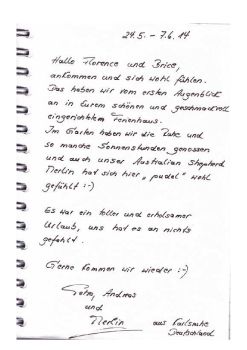 24.5. - 7.6.14
Hallo Florence und Brice,
ankommen und sich wohl fühlen.
Das haben wir vom ersten Augenblick
an in Eurem schönen und geschmackvoll
eingerichtetem Ferienhaus.
Im Garten haben wir die Ruhe und
so manche Sonnenstunden genossen
und auch unser Australian Shepherd
Merlin hat sich hier „pudel" wohl
gefühlt :-)
Es war ein toller und erholsamer
Urlaub, uns hat es an nichts
gefehlt.
Gerne kommen wir wieder :-)
Petra, Andreas
und
Merlin aus Karlsruhe
Deutschland